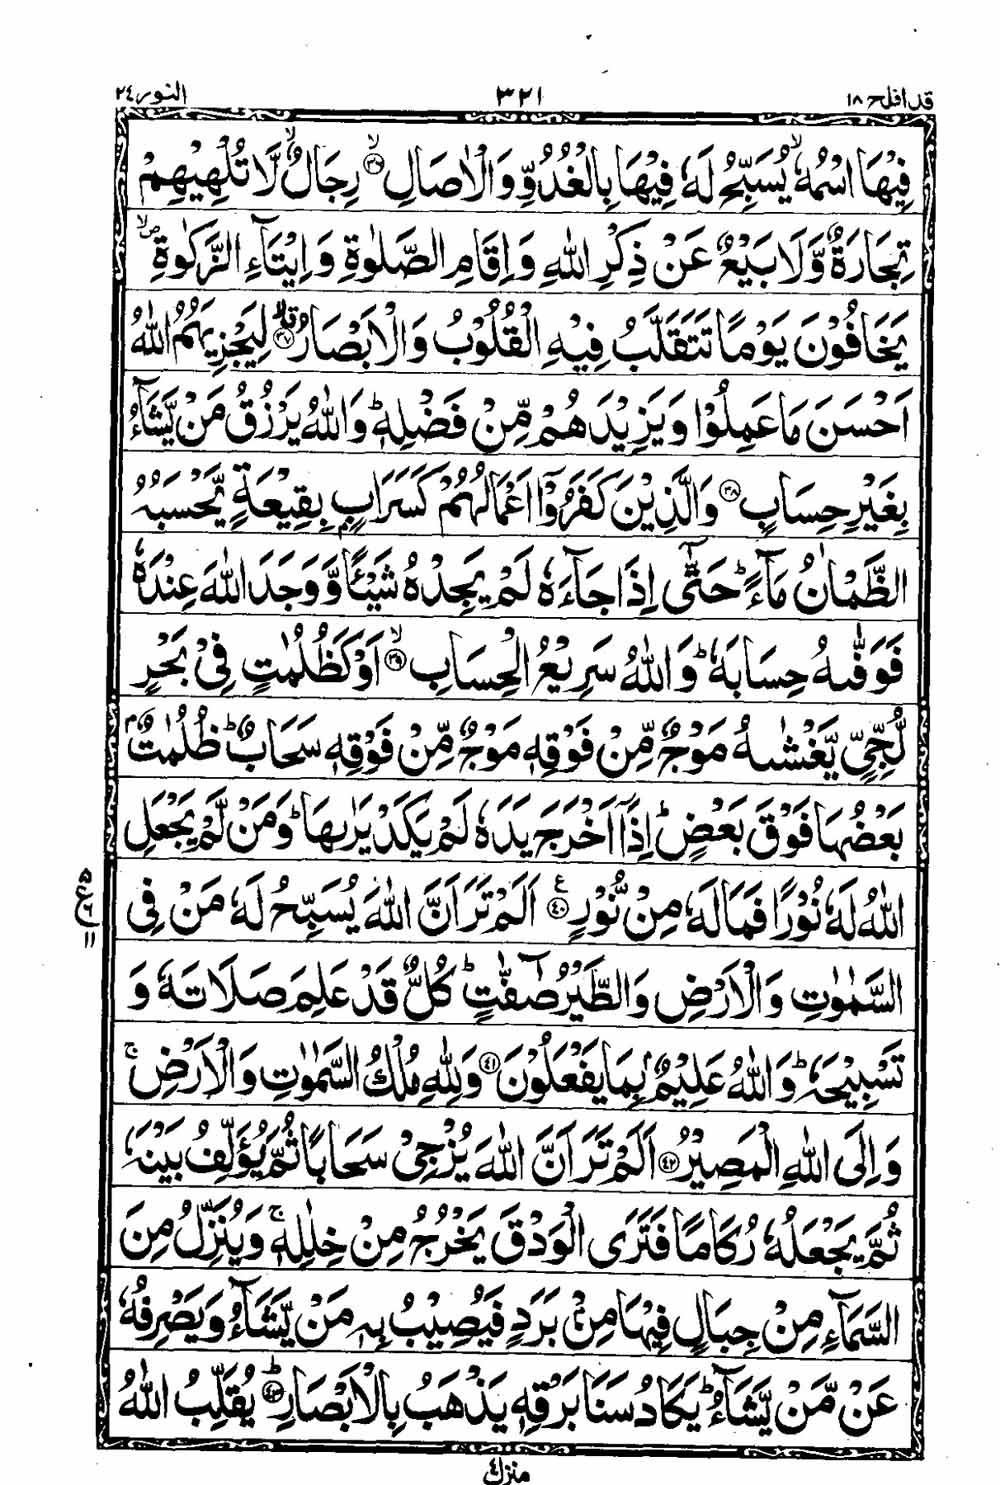 قد افلح ١٨ ٣٢١ النور ٢٤
فِيْهَا اسْمُهٗ ۙ يُسَبِّحُ لَهٗ فِيْهَا بِالْغُدُوِّ وَالْاٰصَالِ ۙ﴿۳۶﴾ رِجَالٌ ۙ لَّا تُلْهِيْهِمْ
تِجَارَةٌ وَّلَا بَيْعٌ عَنْ ذِكْرِ اللّٰهِ وَاِقَامِ الصَّلٰوةِ وَاِيْتَآءِ الزَّكٰوةِ ۙ ص
يَخَافُوْنَ يَوْمًا تَتَقَلَّبُ فِيْهِ الْقُلُوْبُ وَالْاَبْصَارُ ۙق﴿۳۷﴾ لِيَجْزِيَهُمُ اللّٰهُ
اَحْسَنَ مَا عَمِلُوْا وَيَزِيْدَهُمْ مِّنْ فَضْلِهٖ ؕ وَاللّٰهُ يَرْزُقُ مَنْ يَّشَآءُ
بِغَيْرِ حِسَابٍ ﴿۳۸﴾ وَالَّذِيْنَ كَفَرُوْۤا اَعْمَالُهُمْ كَسَرَابٍۭ بِقِيْعَةٍ يَّحْسَبُهُ
الظَّمْاٰنُ مَآءً ؕ حَتّٰۤى اِذَا جَآءَهٗ لَمْ يَجِدْهُ شَيْـًٔا وَّوَجَدَ اللّٰهَ عِنْدَهٗ
فَوَفّٰىهُ حِسَابَهٗ ؕ وَاللّٰهُ سَرِيْعُ الْحِسَابِ ۙ﴿۳۹﴾ اَوْ كَظُلُمٰتٍ فِيْ بَحْرٍ
لُّجِّيٍّ يَّغْشٰىهُ مَوْجٌ مِّنْ فَوْقِهٖ مَوْجٌ مِّنْ فَوْقِهٖ سَحَابٌ ؕ ظُلُمٰتٌۢ
بَعْضُهَا فَوْقَ بَعْضٍ ؕ اِذَاۤ اَخْرَجَ يَدَهٗ لَمْ يَكَدْ يَرٰىهَا ؕ وَمَنْ لَّمْ يَجْعَلِ
اللّٰهُ لَهٗ نُوْرًا فَمَا لَهٗ مِنْ نُّوْرٍ ﴿۴۰﴾ع اَلَمْ تَرَ اَنَّ اللّٰهَ يُسَبِّحُ لَهٗ مَنْ فِي
۵ ع ٦ ١١
السَّمٰوٰتِ وَالْاَرْضِ وَالطَّيْرُ صٰٓفّٰتٍ ؕ كُلٌّ قَدْ عَلِمَ صَلَاتَهٗ وَ
تَسْبِيْحَهٗ ؕ وَاللّٰهُ عَلِيْمٌۢ بِمَا يَفْعَلُوْنَ ﴿۴۱﴾ وَلِلّٰهِ مُلْكُ السَّمٰوٰتِ وَالْاَرْضِ ۚ
وَاِلَى اللّٰهِ الْمَصِيْرُ ﴿۴۲﴾ اَلَمْ تَرَ اَنَّ اللّٰهَ يُزْجِيْ سَحَابًا ثُمَّ يُؤَلِّفُ بَيْنَهٗ
ثُمَّ يَجْعَلُهٗ رُكَامًا فَتَرَى الْوَدْقَ يَخْرُجُ مِنْ خِلٰلِهٖ ۚ وَيُنَزِّلُ مِنَ
السَّمَآءِ مِنْ جِبَالٍ فِيْهَا مِنْۢ بَرَدٍ فَيُصِيْبُ بِهٖ مَنْ يَّشَآءُ وَيَصْرِفُهٗ
عَنْ مَّنْ يَّشَآءُ ؕ يَكَادُ سَنَا بَرْقِهٖ يَذْهَبُ بِالْاَبْصَارِ ؕ﴿۴۳﴾ يُقَلِّبُ اللّٰهُ
منزل ٤